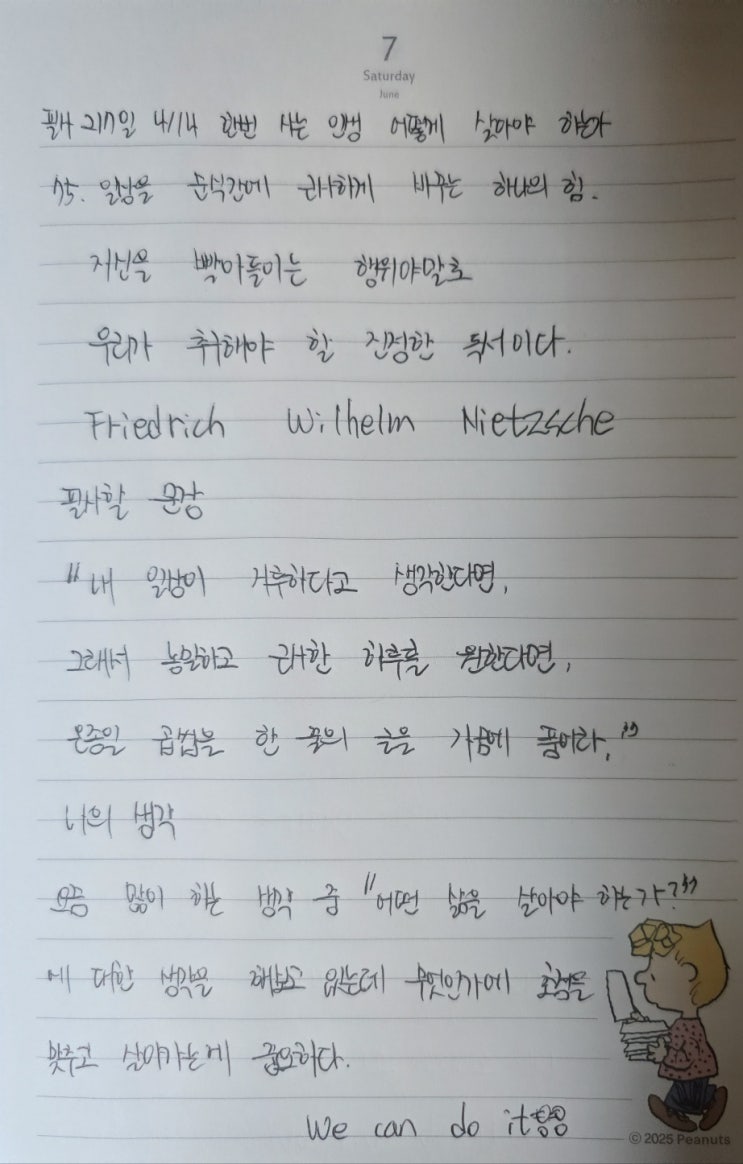 7
Saturday
June
필사 217일 4/14 한번 사는 인생 어떻게 살아야 하는가
75. 일상을 순식간에 근사하게 바꾸는 하나의 힘.
자신을 빡아들이는 행위야말로
우리가 추구해야 할 진정한 독서이다.
Friedrich Wilhelm Nietzsche
필사할 문장
"내 일상이 지루하다고 생각한다면,
그래서 농밀하고 근사한 하루를 원한다면,
온종일 곱씹을 한 줄의 글을 가슴에 품어라."
나의 생각
요즘 많이 하는 생각 중 "어떤 삶을 살아야 하는가?"
에 대한 생각을 해보고 있는데 무엇인가에 초점을
맞추고 살아가는게 중요하다.
We can do it
© 2025 Peanuts